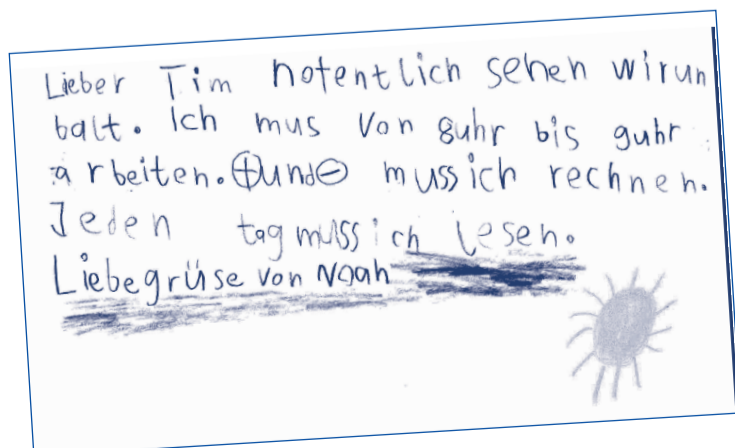 Lieber Tim hofentlich sehen wirun
balt. Ich mus von 8uhr bis 9uhr
arbeiten. ⊕und⊖ muss ich rechnen.
Jeden tag muss ich lesen.
Liebe grüse von Noah